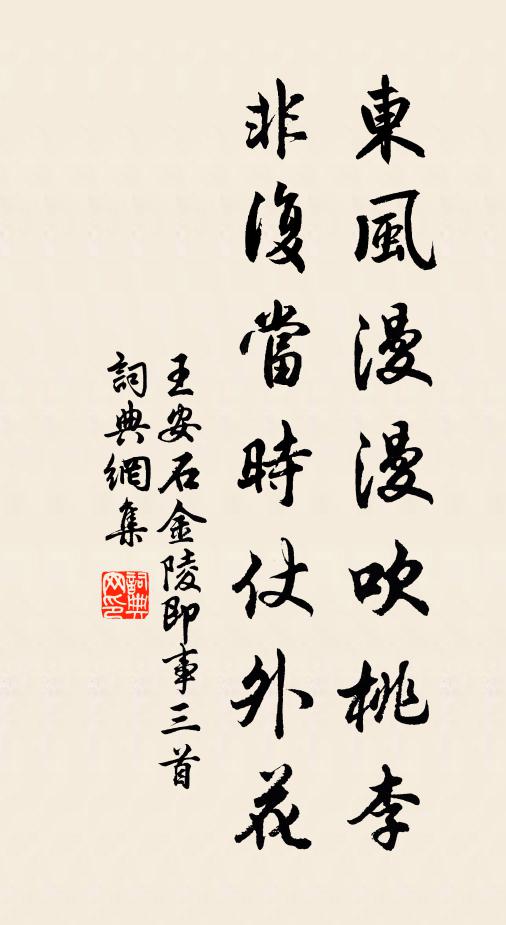 東風漫漫吹桃李
非復當時仗外花
王安石金陵即事三首
詞典網集
詞典網印